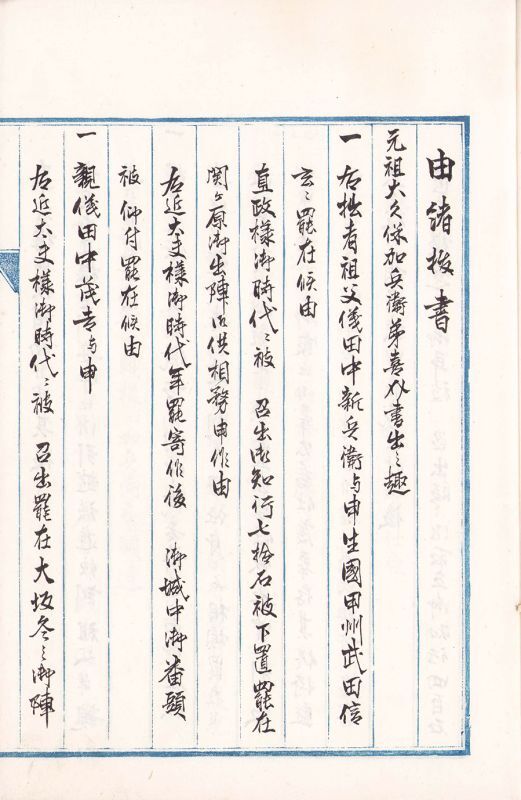 由緒抜書
元祖大久保加兵衛弟喜八書出之趣
一 右拙者祖父儀田中新兵衛与申生國甲州武田信
玄ニ罷在候由
直政様御時代ニ被 召出御知行七拾石被下置罷在
関ヶ原御出陣御供相務申候由
右近大夫様御時代年罷寄候後 御城中御番頭
被 仰付罷在候由
一 親儀田中茂吉与申
右近大夫様御時代ニ被 召出罷在大坂冬之御陣